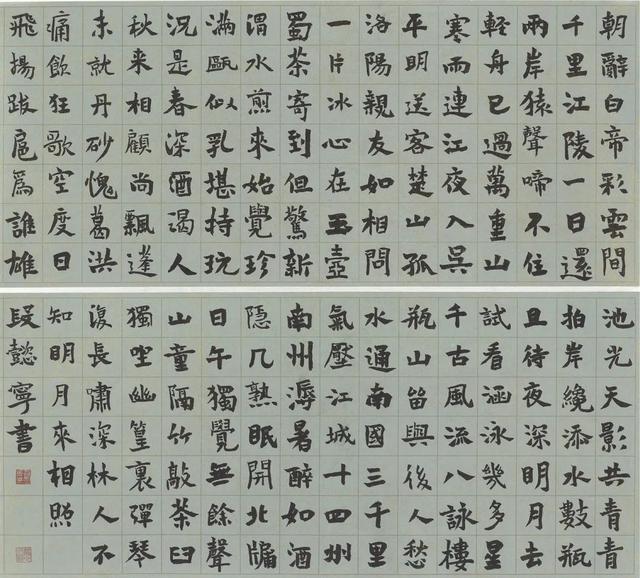 朝辭白帝彩雲間
千里江陵一日還
兩岸猿聲啼不住
輕舟已過萬重山
寒雨連江夜入吳
平明送客楚山孤
洛陽親友如相問
一片冰心在玉壺
蜀茶寄到但驚新
渭水煎來始覺珍
滿甌似乳堪持玩
況是春深酒渴人
秋来相顧尚飄蓬
未就丹砂愧葛洪
痛飲狂歌空度日
飛揚跋扈爲誰雄
池光天影共青青
拍岸纔添水數瓶
且待夜深明月去
試看涵泳幾多星
千古風流八詠樓
瓶山畱與後人愁
水通南國三千里
氣壓江城十四州
南州溽暑醉如酒
隱几熟眠開北牖
日午獨覺無餘聲
山童隔竹敲茶臼
獨坐幽篁裏彈琴
復長嘯深林人不
知明月來相照
段懿寧書